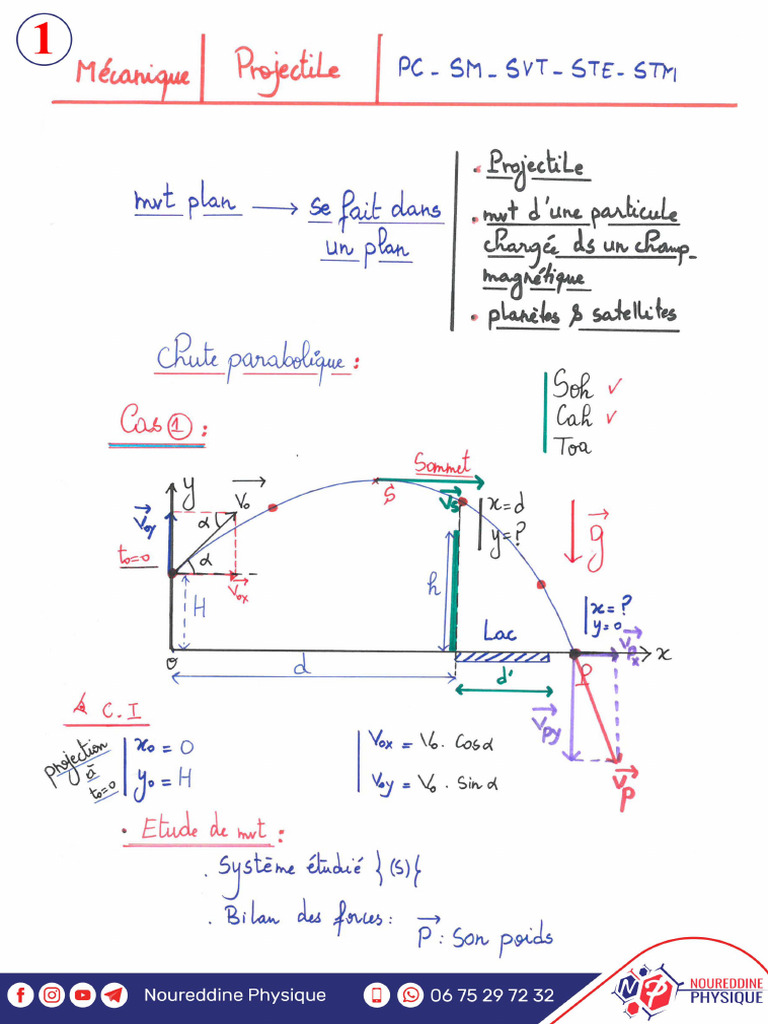 1
Mécanique | Projectile | PC - SM - SVT - STE - STM
mvt plan → se fait dans
un plan
• Projectile
• mvt d'une particule
chargée ds un champ
magnétique
• planètes & satellites
Chute parabolique :
Cas ① :
Soh ✓
Cah ✓
Toa
y
V₀y
V₀
α
α
t₀=0
V₀x
H
Sommet
S
Vs
x=d
y=?
g
h
x=?
y=0
Lac
Vpx
x
o
d
d'
P
Vpy
Vp
C.I
projection
à
t₀=0
x₀ = 0
y₀ = H
V₀x = V₀ . Cos α
V₀y = V₀ . Sin α
• Etude de mvt :
. Système étudié {(S)}
. Bilan des forces : P : Son poids
Noureddine Physique
06 75 29 72 32
NP
NOUREDDINE
PHYSIQUE